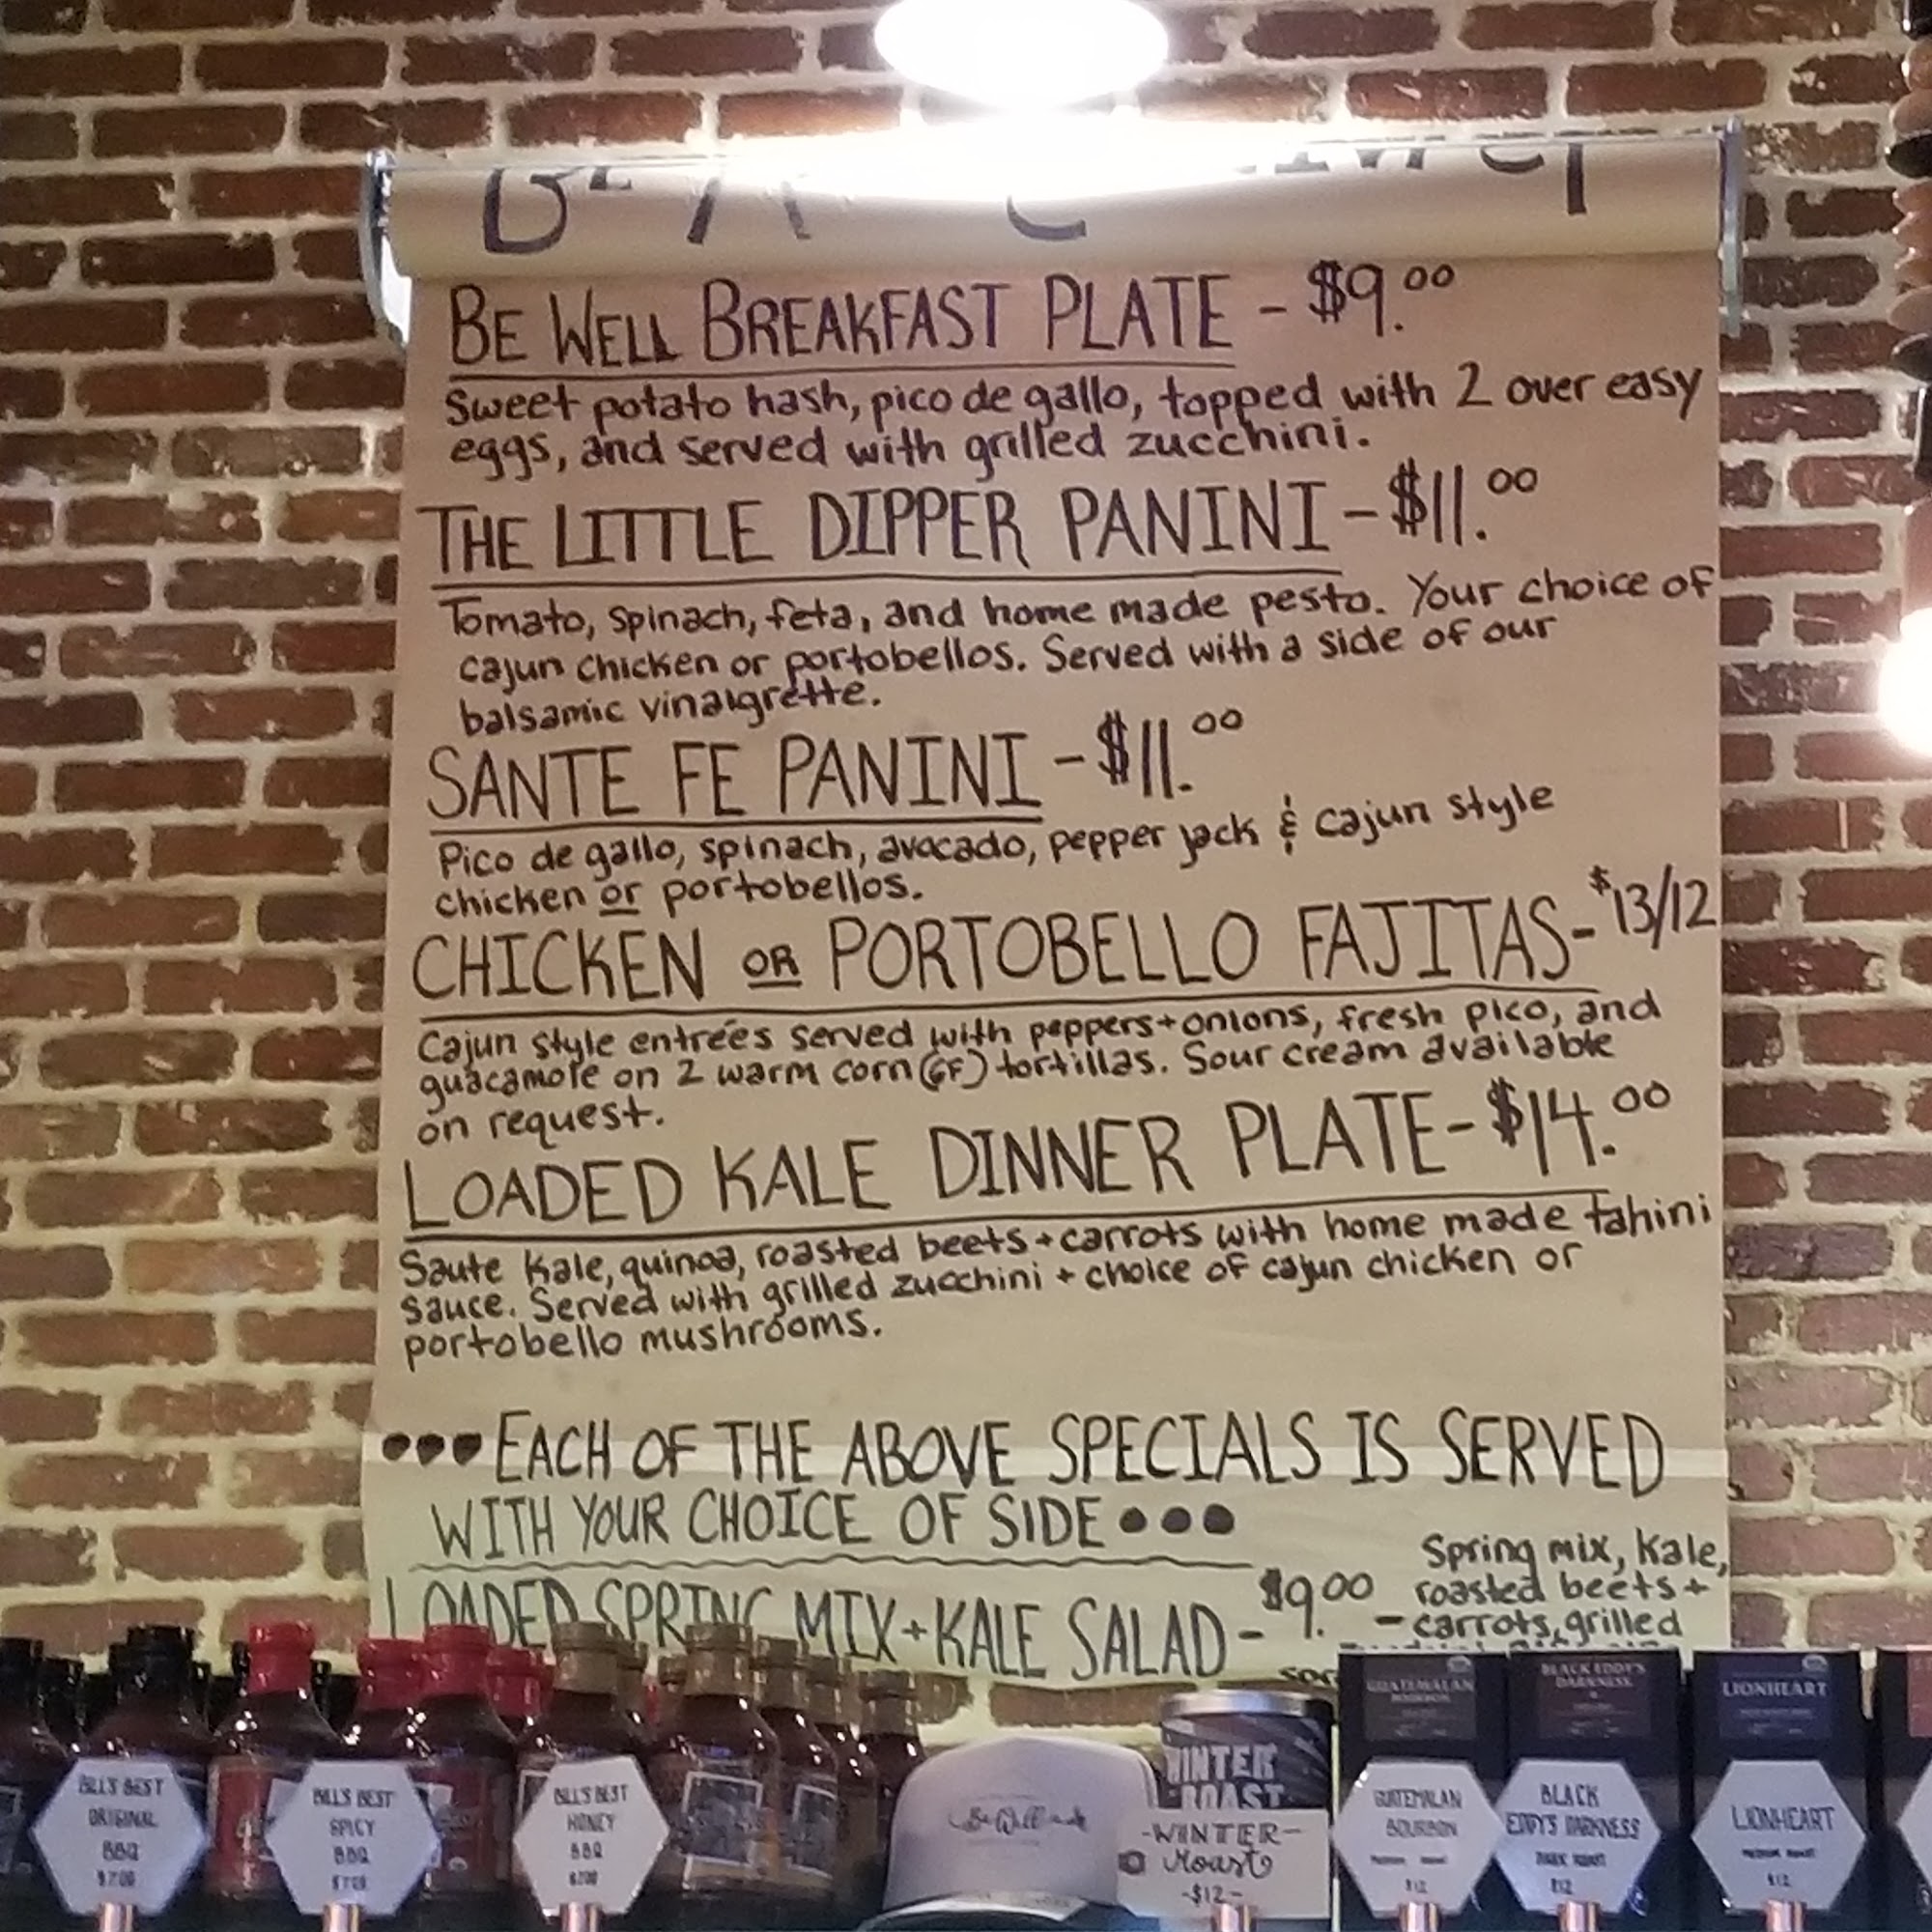 BE WELL BREAKFAST PLATE - $9.00
Sweet potato hash, pico de gallo, topped with 2 over easy
eggs, and served with grilled zucchini.
THE LITTLE DIPPER PANINI - $11.00
Tomato, spinach, feta, and home made pesto. Your choice of
cajun chicken or portobellos. Served with a side of our
balsamic vinaigrette.
SANTE FE PANINI - $11.00
Pico de gallo, spinach, avocado, pepper jack & cajun style
chicken or portobellos.
CHICKEN OR PORTOBELLO FAJITAS - $13/12
Cajun style entrées served with peppers + onions, fresh pico, and
guacamole on 2 warm corn (GF) tortillas. Sour cream available
on request.
LOADED KALE DINNER PLATE - $14.00
Saute kale, quinoa, roasted beets + carrots with home made tahini
sauce. Served with grilled zucchini + choice of cajun chicken or
portobello mushrooms.
••• EACH OF THE ABOVE SPECIALS IS SERVED
WITH YOUR CHOICE OF SIDE •••
LOADED SPRING MIX + KALE SALAD - $9.00
Spring mix, kale,
roasted beets +
- carrots, grilled
BILL'S BEST
ORIGINAL
BBQ
$7.00
BILL'S BEST
SPICY
BBQ
$7.00
BILL'S BEST
HONEY
BBQ
$7.00
Be Well
WINTER
ROAST
-WINTER-
Roast
-$12-
GUATEMALAN
BOURBON
GUATEMALAN
BOURBON
MEDIUM ROAST
$12
BLACK EDDY'S
DARKNESS
BLACK
EDDY'S DARKNESS
DARK ROAST
$12
LIONHEART
LIONHEART
MEDIUM ROAST
$12